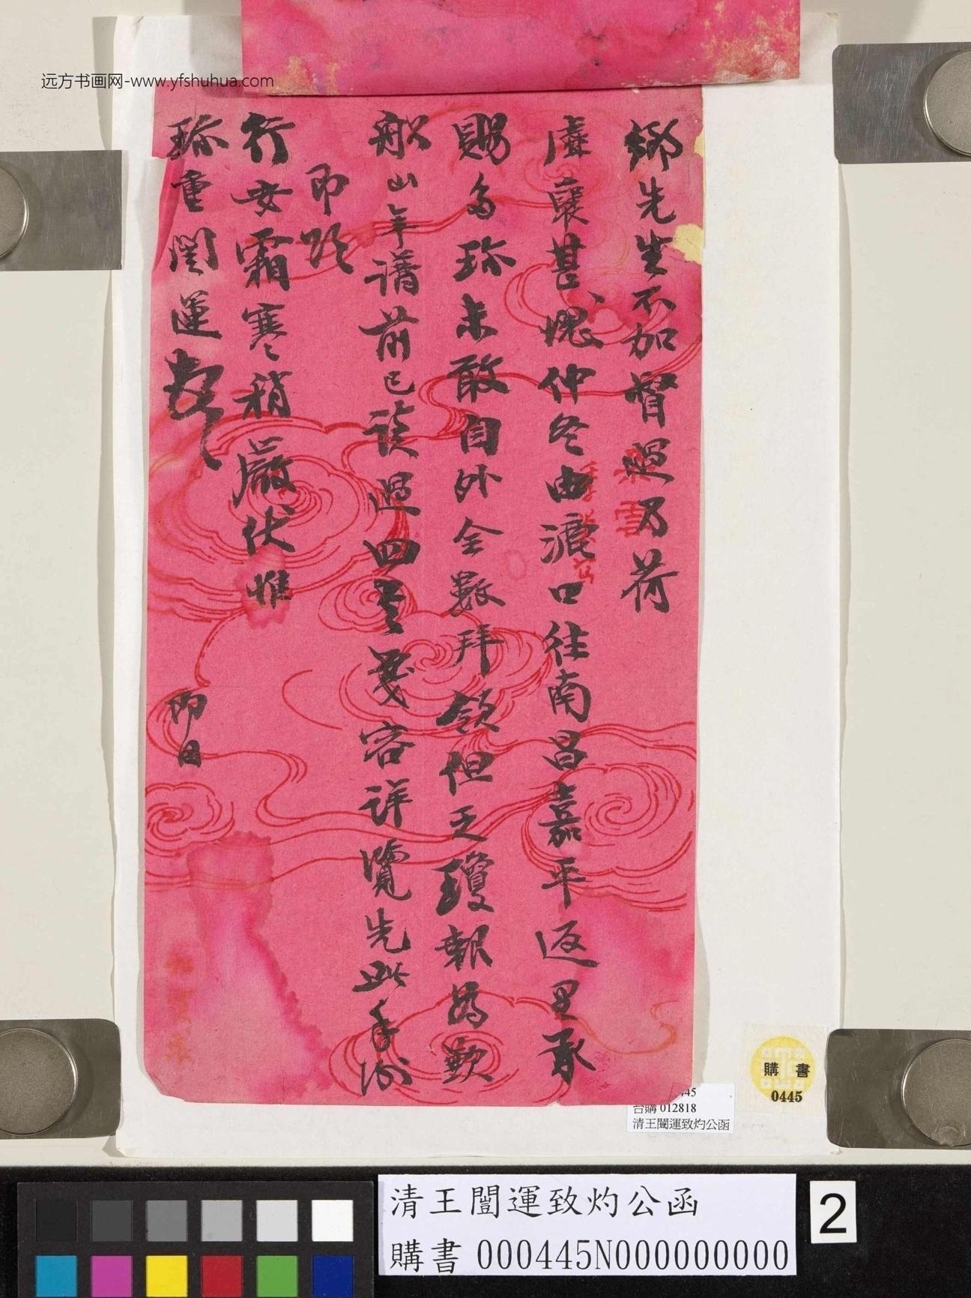 远方书画网-www.yfshuhua.com
鄉先生不加督過乃荷
廑褱甚愧仲冬由漢口往南昌嘉平返里承
賜多珍未敢自外全數拜領但乏瓊報爲歉
船山年譜前已讀過四𠫤容詳覽先此手謝
即頌
行安霜寒稍嚴伏惟
珍重闓運 即日
購書
0445
台購 012818
清王闓運致灼公函
清王闓運致灼公函
購書 000445N000000000
2